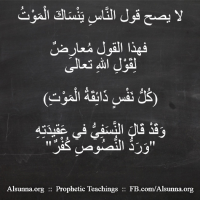 لا يصح قول النَّاسِ يَنْسَاكَ الْمَوْتُ
فهذا القول مُعارِضٌ
لِقَوْلِ اللهِ تعالى
(كُلُّ نَفْسٍ ذَائِقَةُ الْمَوْتِ)
وَقَدْ قَالَ النَّسَفِيُّ في عَقِيدَتِهِ
"وَرَدُّ النُّصُوصِ كُفْرٌ"
Alsunna.org :: Prophetic Teachings :: FB.com/Alsunna.org